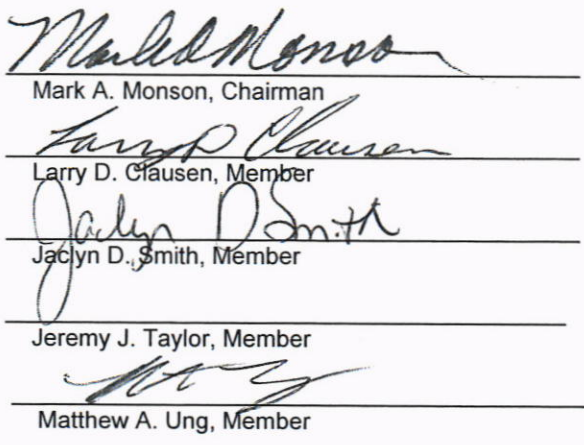 Mark A Monson
Mark A. Monson, Chairman
Larry D Clausen
Larry D. Clausen, Member
Jaclyn D Smith
Jaclyn D. Smith, Member
Jeremy J. Taylor, Member
Matthew A. Ung, Member